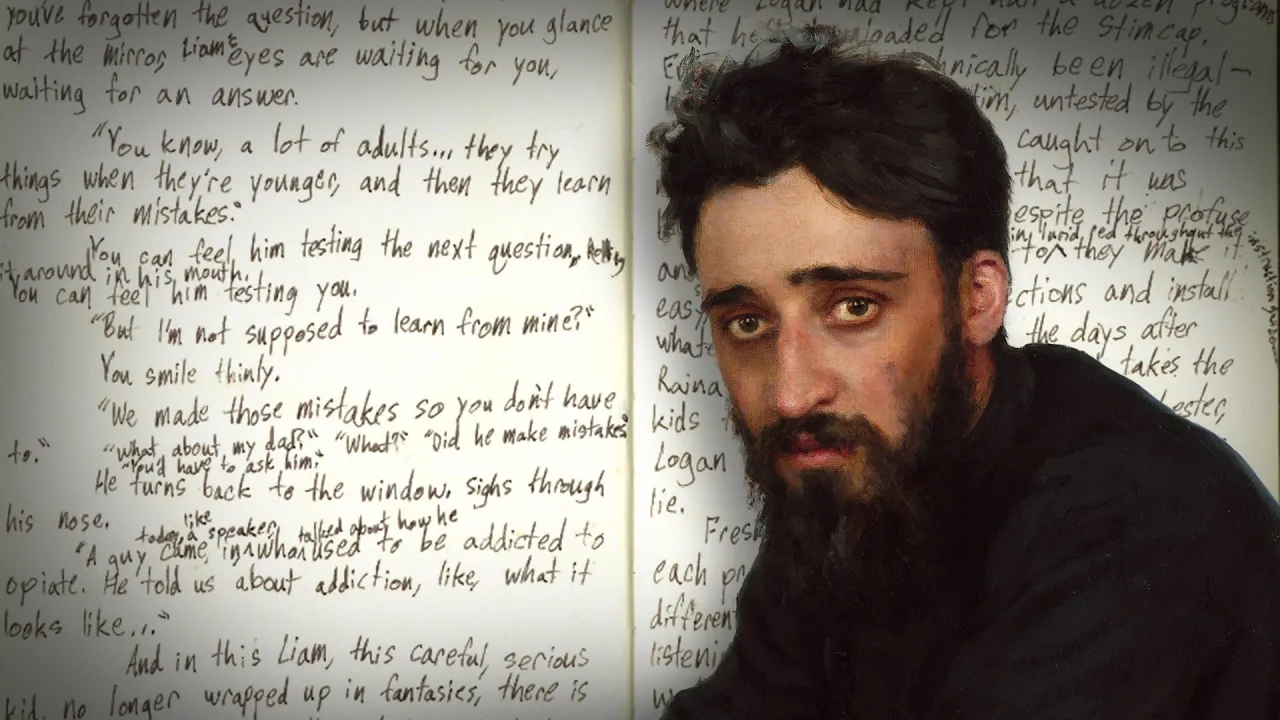 you've forgotten the question, but when you glance
at the mirror, Liam's eyes are waiting for you,
waiting for an answer.
"You know, a lot of adults... they try
things when they're younger, and then they learn
from their mistakes."
You can feel him testing the next question, rolling
it around in his mouth.
You can feel him testing you.
"But I'm not supposed to learn from mine?"
You smile thinly.
"We made those mistakes so you don't have
to." "What about my dad?" "What?" "Did he make mistakes
"You'd have to ask him."
He turns back to the window. Sighs through
his nose.
like
today a speaker, talked about how he
"A guy came in who used to be addicted to
opiate. He told us about addiction, like, what it
looks like..."
And in this Liam, this careful, serious
kid, no longer wrapped up in fantasies, there is
where Logan had kept half a dozen programs
that he loaded for the Stimcap.
hnically been illegal—
tim, untested by the
caught on to this
that it was
espite the profuse
throughout the
instruction
to they make it
and ctions and install
easy
the days after
what
Raina takes the
kids ester,
Logan
lie.
Fresh
each pr
different
listeni